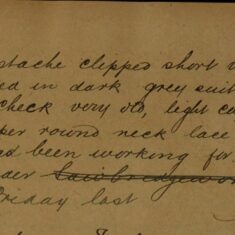 stache clipped short
ed in dark grey suit
check very old, light ca
per round neck lace
had been working for
der
Friday last